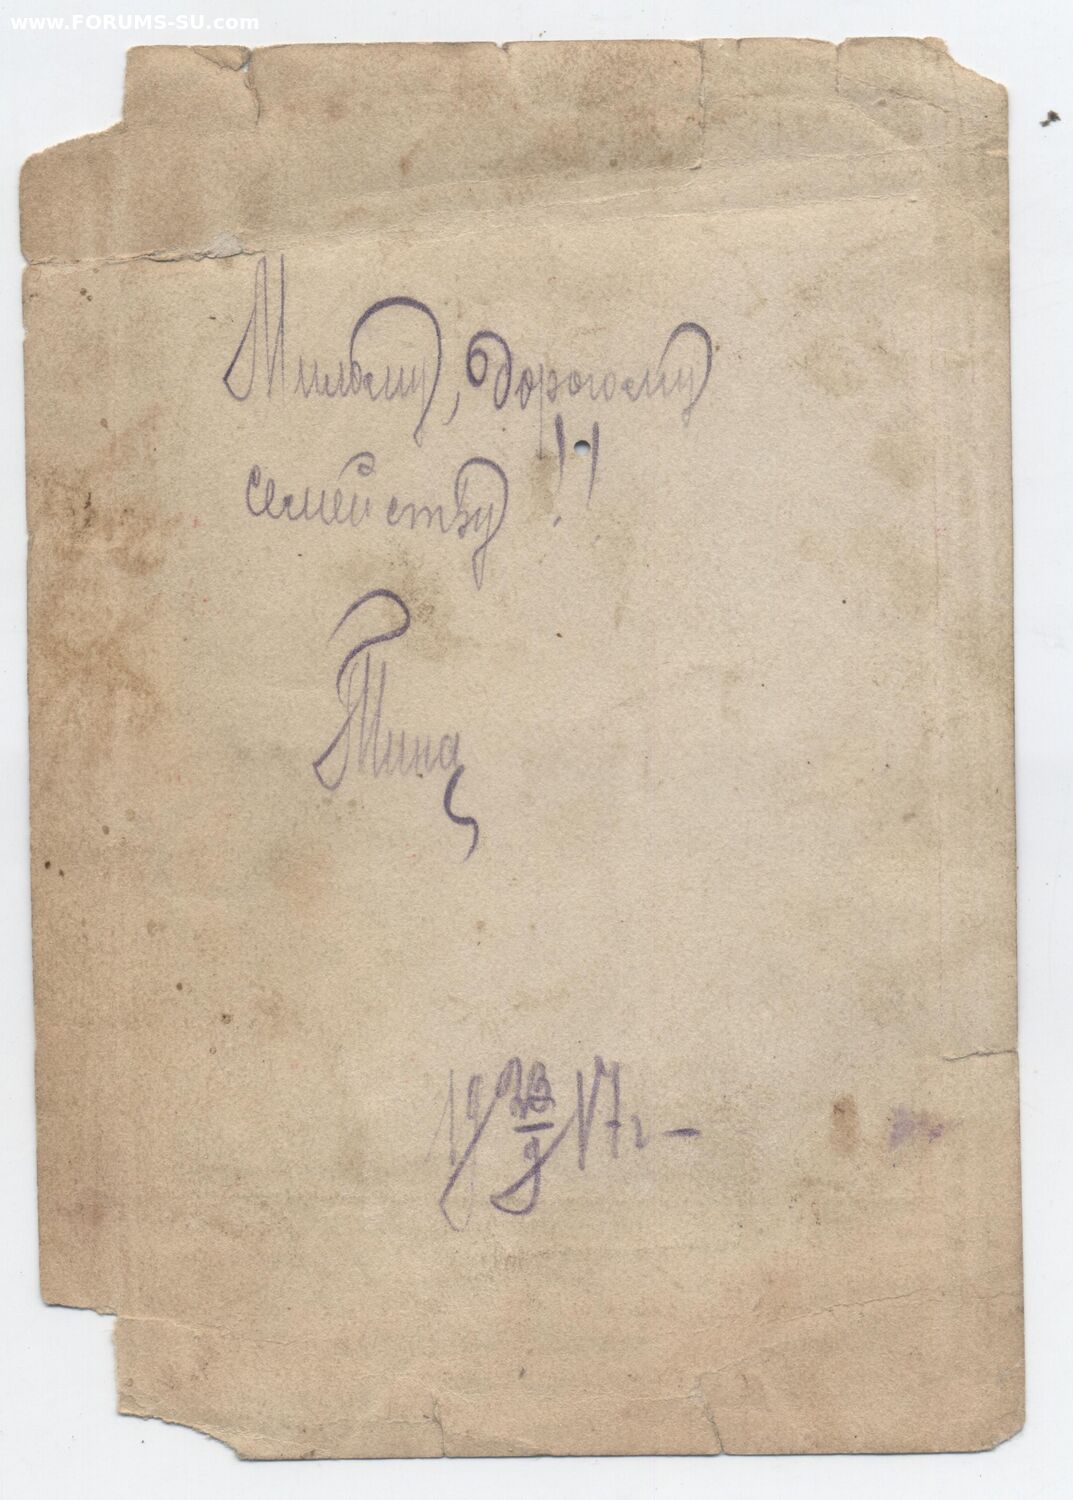 www.FORUMS-SU.com
Милому, дорогому
семейству!!
Тина
19 23/9 17г —